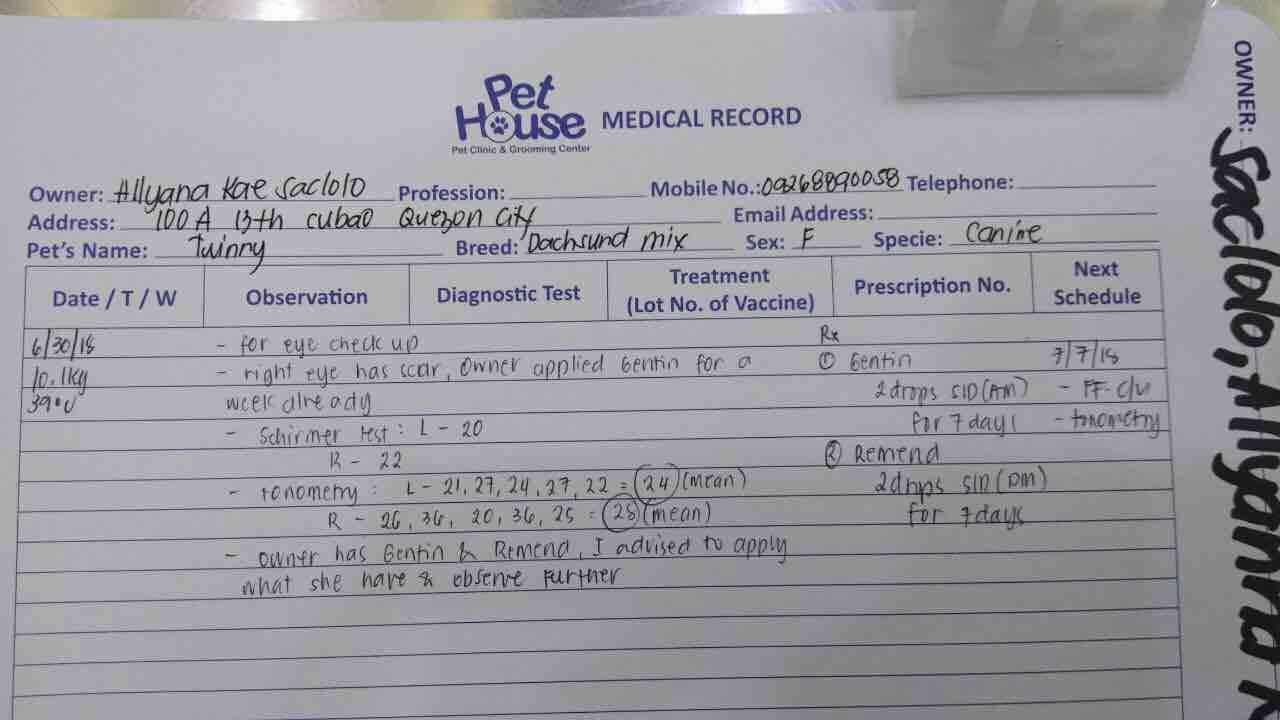 Pet House
MEDICAL RECORD
Pet Clinic & Grooming Center
Owner: Allyana Kae Saclolo Profession: Mobile No.: 09268890058 Telephone:
Address: 100 A 13th cubao Quezon City Email Address:
Pet's Name: Twinny Breed: Dachsund mix Sex: F Specie: Canine
Date / T / W Observation Diagnostic Test Treatment (Lot No. of Vaccine) Prescription No. Next Schedule
6/30/18 - for eye check up Rx
10.1kg - right eye has scar, owner applied Gentin for a ① Gentin 7/7/18
39.0 week already 2 drops SID (AM) - FF-c/u
- Schirmer test: L - 20 for 7 days - tonometry
R - 22 ② Remend
- tonometry: L - 21, 27, 24, 27, 22 = 24 (mean) 2 drops SID (PM)
R - 26, 36, 20, 36, 25 = 28 (mean) for 7 days
- owner has Gentin & Remend, I advised to apply
what she have & observe further
OWNER: Saclolo, Allyanna K